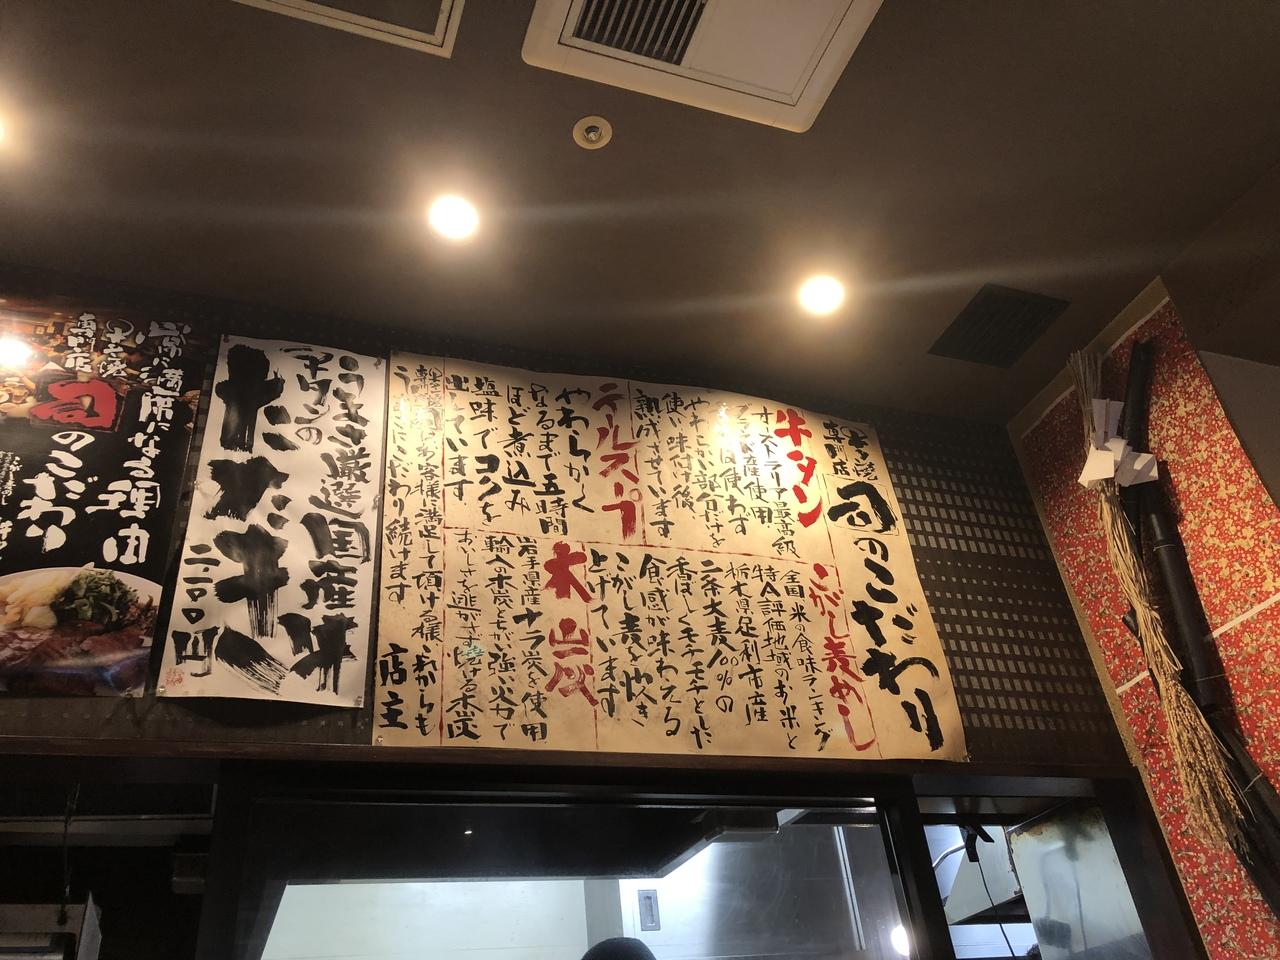 専門店
司のこだわり
牛タン
オーストラリア最高級
使わず
やわらかい部分だけを
使い味付け後、
熟成させています
テールスープ
やわらかく
なるまで五時間
ほど煮込み
塩味でコクを
出しています
こがし麦めし
全国米の食味ランキング
特A評価地域のお米と
栃木県足利市産
二条大麦100%の
香ばしくモチモチとした
食感が味わえる
こがし麦を炊き
上げています
木炭
岩手県産ナラ炭を使用
輪の木炭よりも強い火力で
お客様に満足して頂ける様、これからも
こだわり続けます
店主
うまさ厳選国産牛
タンの
たたき
二二〇〇円
常に満席になる理由
専門店
司
のこだわり